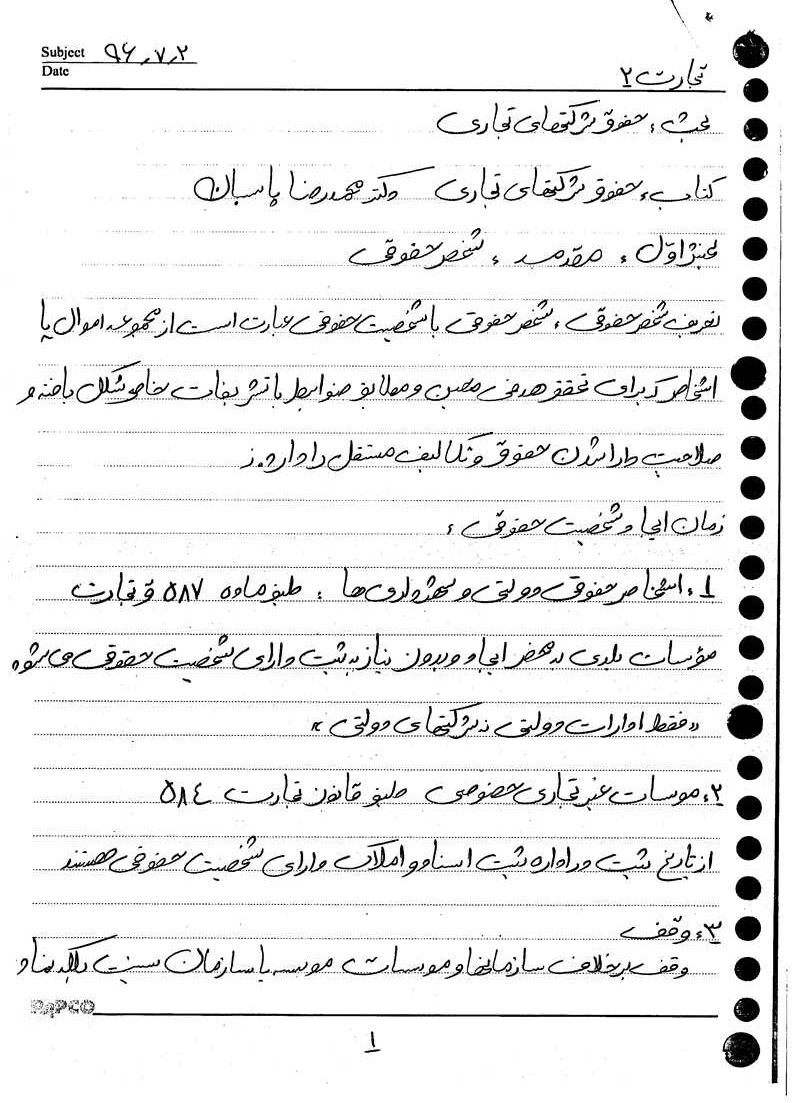 Subject ۹۶٫۷٫۲
Date
تجارت ۲
بحث : حقوق شرکتهای تجاری
کتاب : حقوق شرکتهای تجاری دکتر محمدرضا پاسبان
بخش اول : مقدمه : شخص حقوقی
تعریف شخص حقوقی : شخص حقوقی یا شخصیت حقوقی عبارت است از مجموعه اموال یا
اشخاص که برای تحقق هدفی معین و مطابق ضوابط یا تشریفات خاص شکل یافته و
صلاحیت دارا شدن حقوق و تکالیف مستقل را دارند.
زمان ایجاد شخصیت حقوقی :
۱: اشخاص حقوقی دولتی و شهرداری ها : طبق ماده ۵۸۷ ق تجارت
مؤسسات بلدی به محض ایجاد و بدون نیاز به ثبت دارای شخصیت حقوقی می‌شود
«فقط ادارات دولتی نه شرکتهای دولتی»
۲: موسسات غیر تجاری خصوصی طبق قانون تجارت ۵۸۴
از تاریخ ثبت در اداره ثبت اسناد و املاک دارای شخصیت حقوقی هستند
۳: وقف
وقف برخلاف سازمانها و موسسات موسسه یا سازمان نیست بلکه نهاد
PAPCO
۱